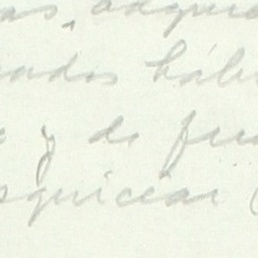 as, adquir
ados hábi
y de fru
squiciar (